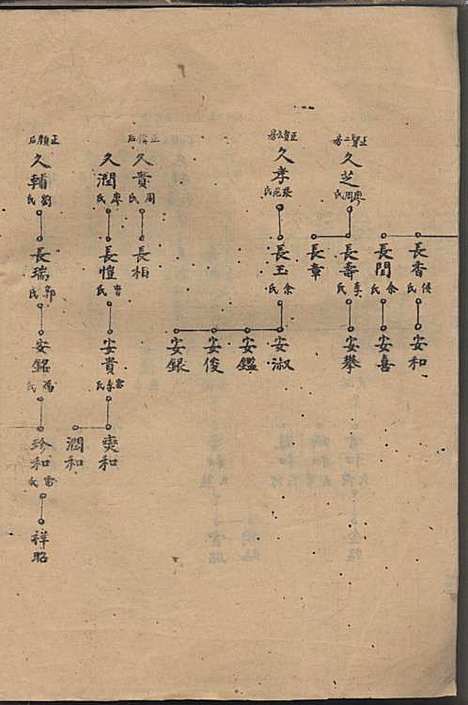 長香
安和
長閏 余氏
安喜
久芝 廖周氏
長壽
安攀
長章
久孝 張范氏
長玉 余氏
安淑
安鑑
安俊
安銀
久貴 周氏
長栢
久潤 廖氏
長愷 曹氏
安貴
奕和
潤和
久輔 劉氏
長瑞 郭氏
安銘 馮氏
珍和 雷氏
祥昭